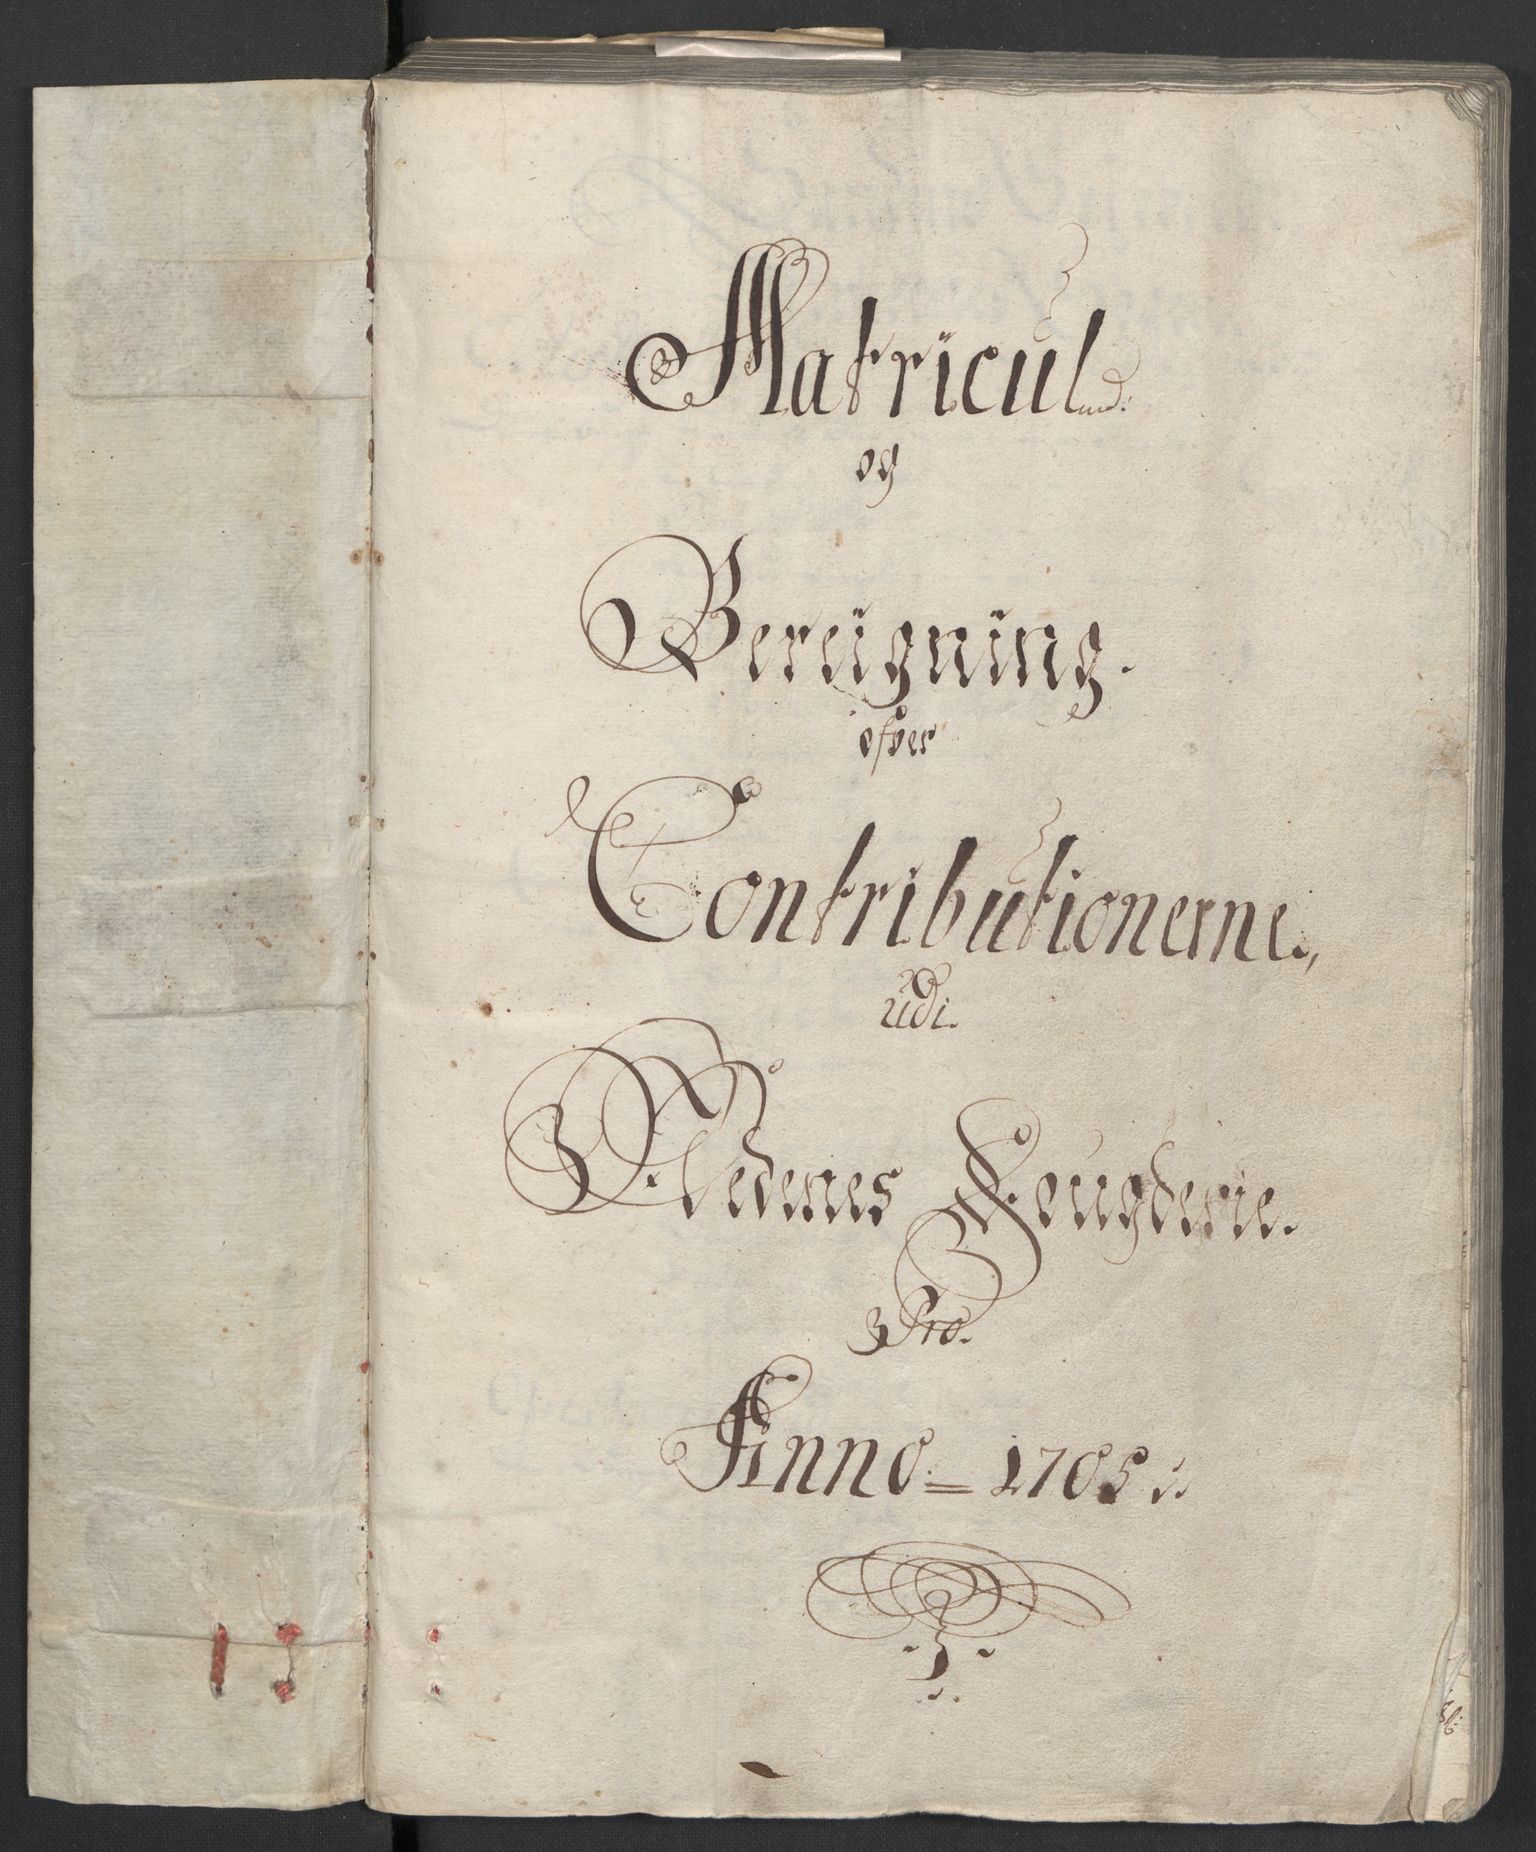 Matricul
og
Bereigning.
ofver
Contributionerne.,
udi.
Nedenes Fougderie.
Pro.
Anno = 1705 :